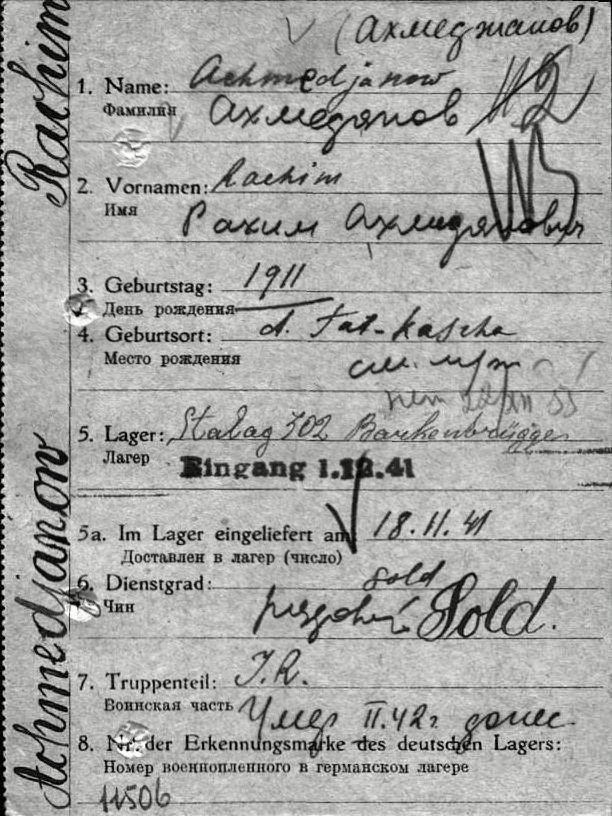 (Ахмеджанов)
1. Name: Achmedjanow
Фамилия Ахмедянов
2. Vornamen: Rachim
Имя Рахим Ахмидянович
3. Geburtstag: 1911
День рождения
4. Geburtsort: d. Tat-Kascha
Место рождения см.
5. Lager: Stalag 302 Barkenbrügge
Лагер Eingang 1.12.41
5a. Im Lager eingeliefert am: 18.11.41
Доставлен в лагер (число)
6. Dienstgrad: Sold
Чин рядовой Sold.
7. Truppenteil: J.R.
Воинская часть Умер II.42г донес.
8. Nr. der Erkennungsmarke des deutschen Lagers:
Номер военнопленного в германском лагере
11506
Achmedjanow Rachim